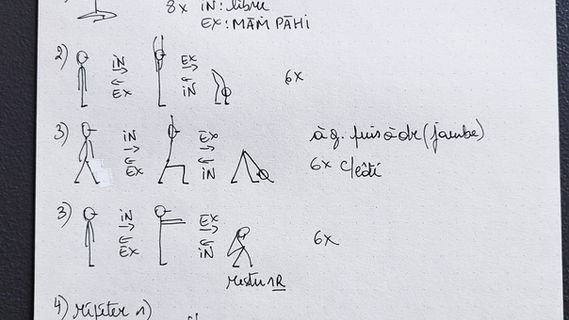 8x IN: libre
EX: MĀM PĀHI
2) IN EX 6x
EX IN
3) IN EX à g. puis à dr (jambe)
EX IN 6x c/côté
3) IN EX 6x
EX IN
rester 1R
4) répéter 1)